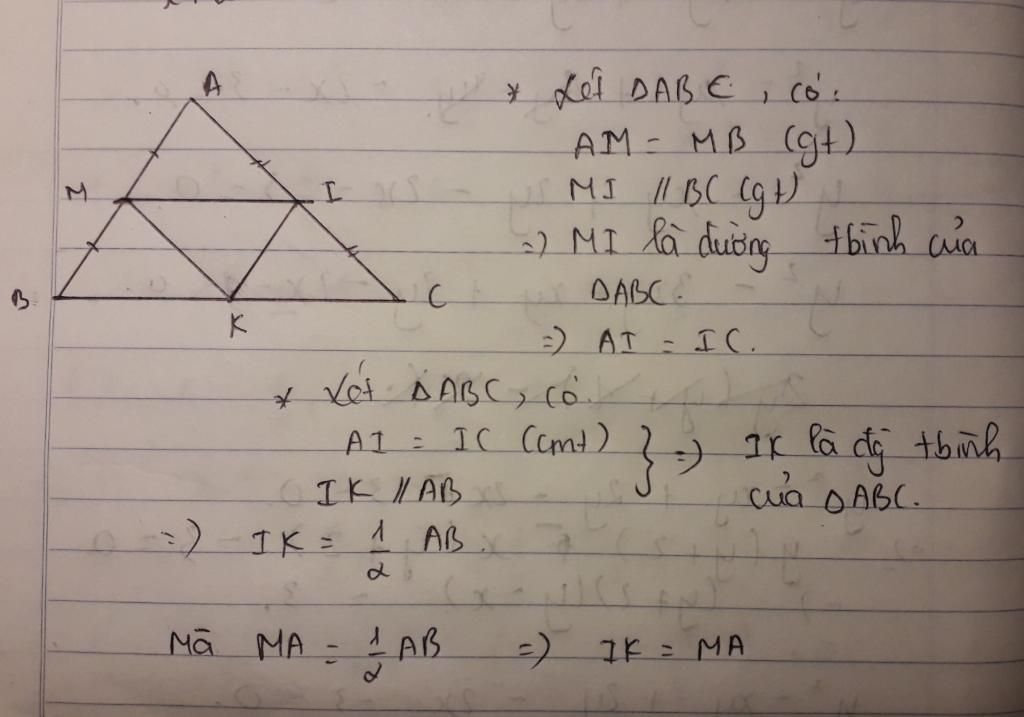 A
M
I
B
K
C
* Xét ΔABC, có:
AM = MB (gt)
MI // BC (gt)
=) MI là đường tbình của
ΔABC.
=) AI = IC.
* Xét ΔABC, có:
AI = IC (cmt) } =) IK là đg tbình
IK // AB của ΔABC.
=) IK = 1/2 AB.
Mà MA = 1/2 AB =) IK = MA